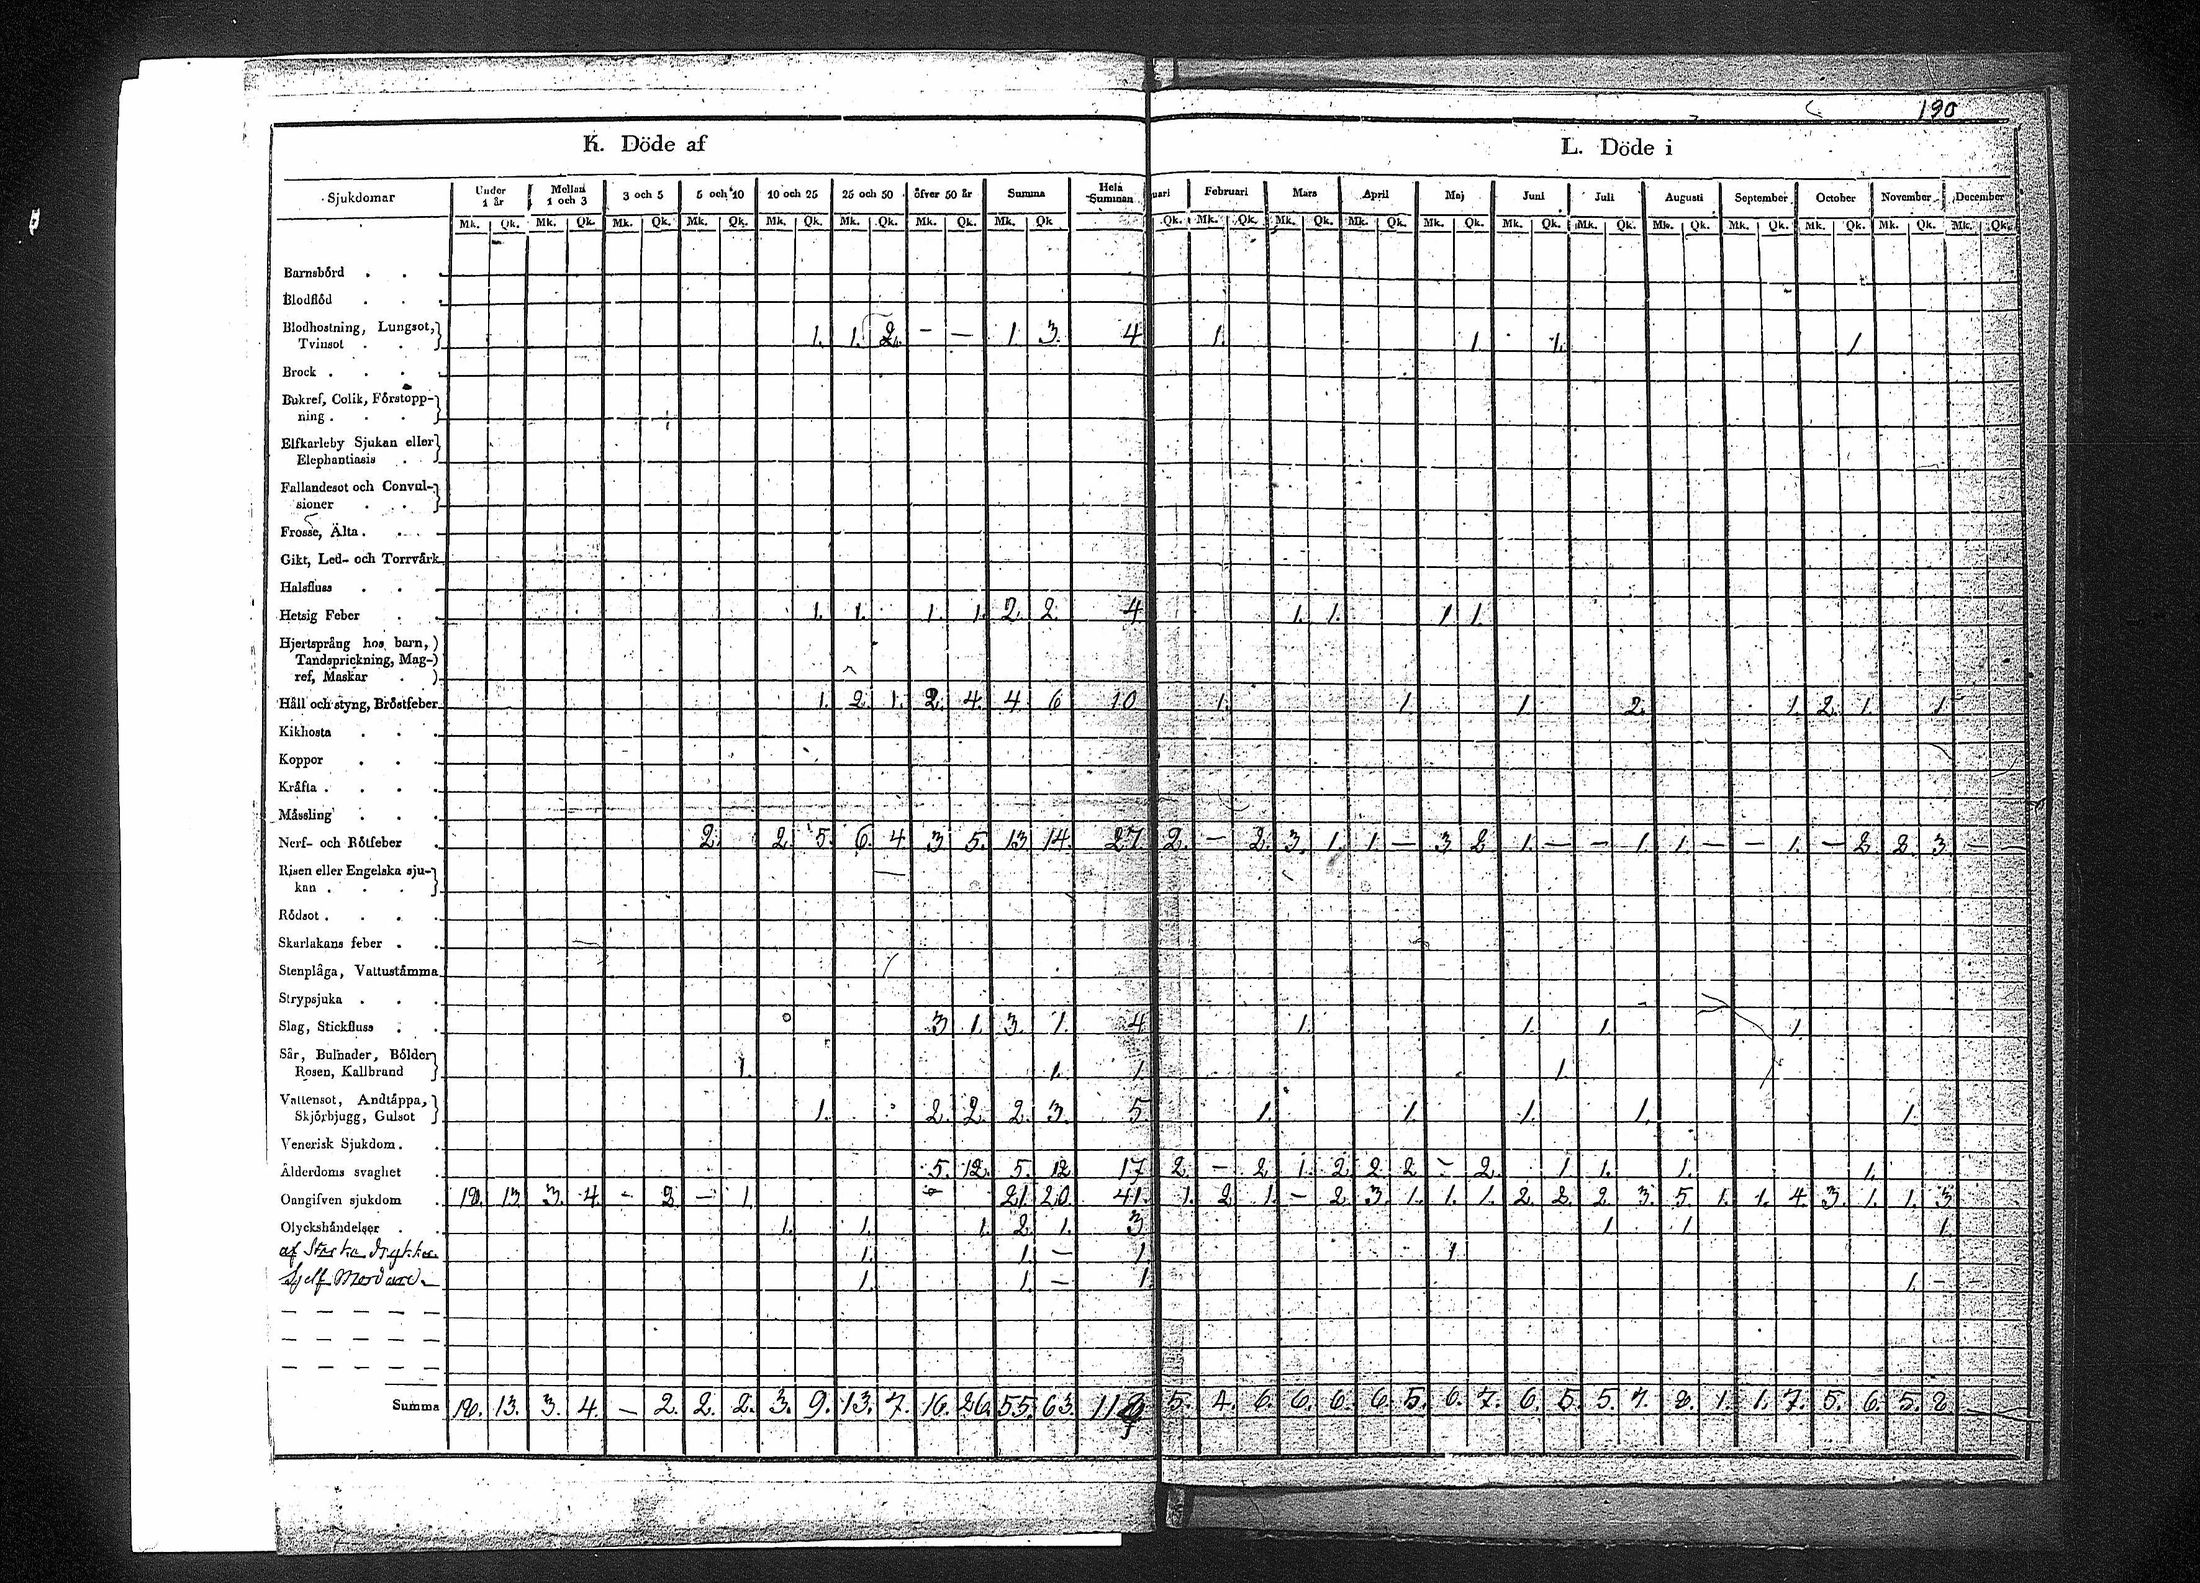 190
K. Döde af
L. Döde i
Sjukdomar Under 1 år Mellan 1 och 3 3 och 5 5 och 10 10 och 25 25 och 50 öfver 50 år Summa Hela Summan uari Februari Mars April Maj Juni Juli Augusti September October November December
Mk. Qk. Mk. Qk. Mk. Qk. Mk. Qk. Mk. Qk. Mk. Qk. Mk. Qk. Mk. Qk Qk. Mk. Qk. Mk. Qk. Mk. Qk. Mk. Qk. Mk. Qk. Mk. Qk. Mk. Qk. Mk. Qk. Mk. Qk. Mk. Qk. Mk. Qk.
Barnsbörd . . .
Blodflöd . . .
Blodhostning, Lungsot,
Tvinsot . . . 1. 1. 2. - — 1. 3. 4 1. 1. 1. 1
Brock . . . .
Bukref, Colik, Förstopp-
ning . . .
Elfkarleby Sjukan eller
Elephantiasis .
Fallandesot och Convul-
sioner . . .
Frossa, Älta . . . .
Gikt, Led- och Torrvärk
Halsfluss . . .
Hetsig Feber . . 1. 1. 1. 1. 2. 2. 4 1. 1. 1 1.
Hjertsprång hos barn,
Tandsprickning, Mag-
ref, Maskar .
Håll och styng, Bröstfeber 1. 2. 1. 2. 4. 4. 6 10 1. 1 1. 2. 1. 2. 1. 1
Kikhosta . . .
Koppor . . .
Kräfta . . . .
Mässling . . .
Nerf- och Rötfeber . 2. 2. 5. 6. 4 3 5. 13 14. 27 2. - 2. 3. 1. 1. — 3 2 1. — — 1. 1. — — 1. — 2 2. 3. — —
Risen eller Engelska sju-
kan . . .
Rödsot . . . .
Skarlakans feber . .
Stenplåga, Vattustämma
Strypsjuka . . .
Slag, Stickfluss . . 3 1. 3. 1. 4 1. 1. 1. 1.
Sår, Bulnader, Bölder
Rosen, Kallbrand 1. 1. 1 1.
Vattensot, Andtäppa,
Skjörbjugg, Gulsot 1. 2. 2. 2. 3. 5 1. 1. 1. 1. 1.
Venerisk Sjukdom . .
Ålderdoms svaghet . 5. 12. 5. 12 17 2. - 2 1. 2. 2 2. - 2. 1. 1. 1. 1.
Oangifven sjukdom . 18. 13 3. 4. - 2. — 1. 21. 20. 41. 1. 2. 1. - 2. 3. 1. 1. 1. 2 2. 2. 3. 5. 1. 1. 4. 3. 1. 1. 3
Olyckshändelser . . 1. 1. 1. 2. 1. 3 1. 1. 1.
af Starka drykker 1. 1. — 1. 1.
Sjelf Mördare 1. 1. — 1 1. -
Summa 18. 13. 3. 4. — 2. 2. 2. 3. 9. 13. 7. 16. 26. 55. 63. 118 5. 4. 6. 6. 6. 6. 5. 6. 7. 6. 5. 5. 7. 8. 1. 1. 7. 5. 6. 5. 8.